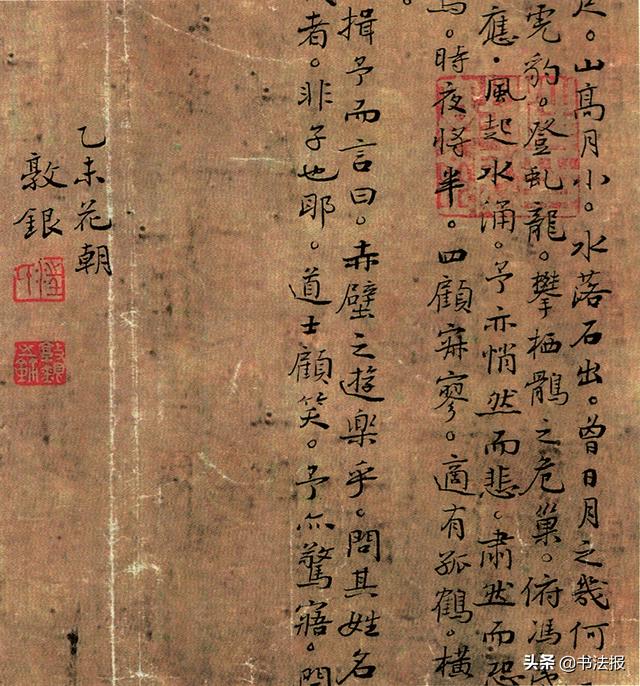 尺。山高月小。水落石出。曾日月之幾何
虎豹。登虬龍。攀栖鶻之危巢。俯馮
應。風起水涌。予亦悄然而悲。肅然而恐
焉。時夜將半。四顧寂寥。適有孤鶴。橫
揖予而言曰。赤壁之遊楽乎。問其姓名
者。非子也耶。道士顧笑。予亦驚寤。開
乙未花朝
敦銀
头条 @书法报